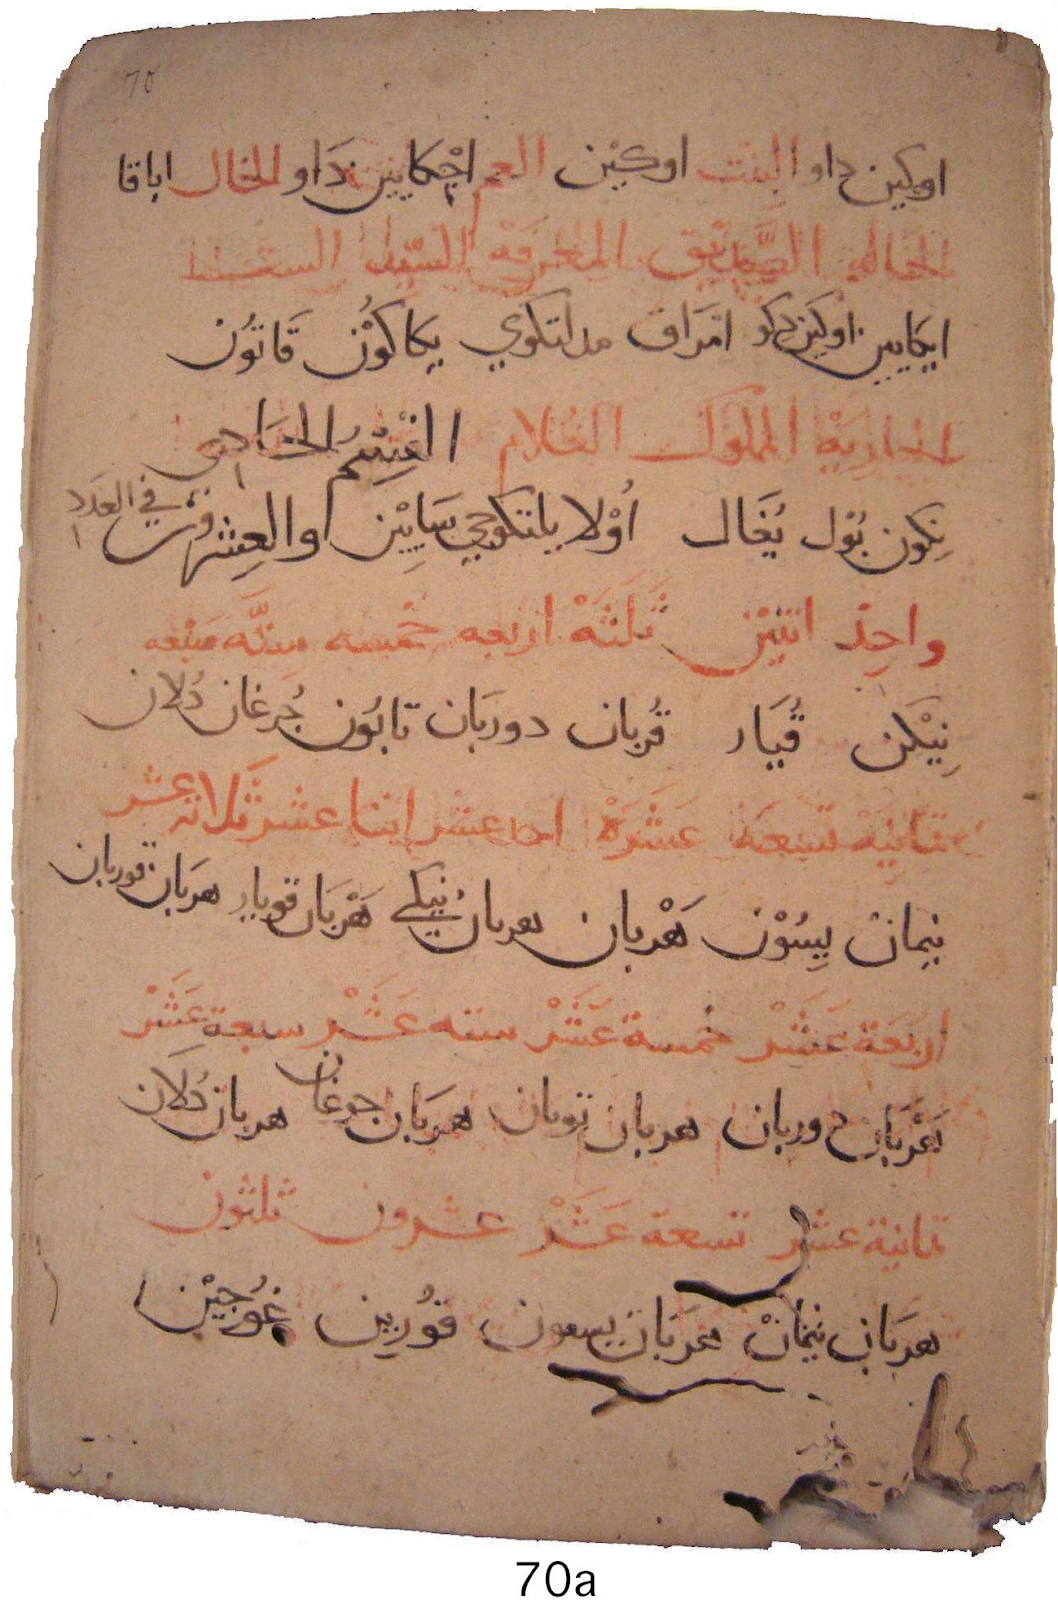 70
اوكين داو البنت اوكين العم اجكايين داو الخال اباقا
الخاله الصَّدِيق المعرفه السّيد الستّ
ايكايين اوكين دكو امَرَاق مدلتكوي يكاكوُن قَاتوُن
الجاريَة المملوك الغلام القِسْمُ الخَامس
نِكون بُوْل يُغَال اُوْلا يلتكوجي سَايِيْن او العِشرُون في العَدَد
واحِدْ اثنَيْن ثَلثَهْ اربعه خمْسه ستَّه سَبْعه
نِيْكَن قُيَار قُربان دورَبان تابُون جُرغان دُلان
ثمانيَهْ تسعَة عَشَرَهْ احد عشر اثنا عشر ثَلاثة عشر
نيمَانْ يِسُوْن هَرْبان هربان نيكي هَرْبَان قويار هربَان قوربان
اربَعَة عَشَرْ خمسة عَشَرْ سته عَشَرْ سبعة عَشَرْ
هَرْبَان دوربان هربان توبان هَربَان جرغان هربان دُلان
ثمانية عشر تسعة عَشَرْ عشرون ثلثون
هربَان نيمَانْ هربَان يسون قوُرِين غوُجِيْن
70a